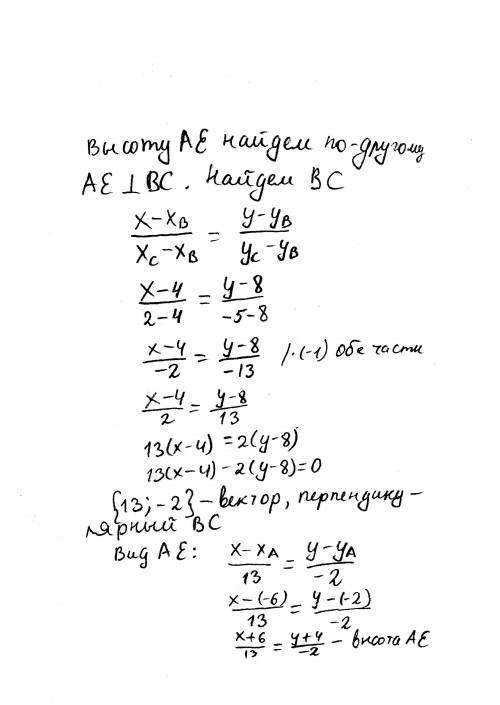 Высоту AE найдем по-другому
AE ⊥ BC. Найдем BC
x-xB / xC-xB = y-yB / yC-yB
x-4 / 2-4 = y-8 / -5-8
x-4 / -2 = y-8 / -13 /·(-1) обе части
x-4 / 2 = y-8 / 13
13(x-4) = 2(y-8)
13(x-4)-2(y-8)=0
{13;-2} - вектор, перпендику-
лярный BC
Вид AE: x-xA / 13 = y-yA / -2
x-(-6) / 13 = y-(-2) / -2
x+6 / 13 = y+4 / -2 - высота AE